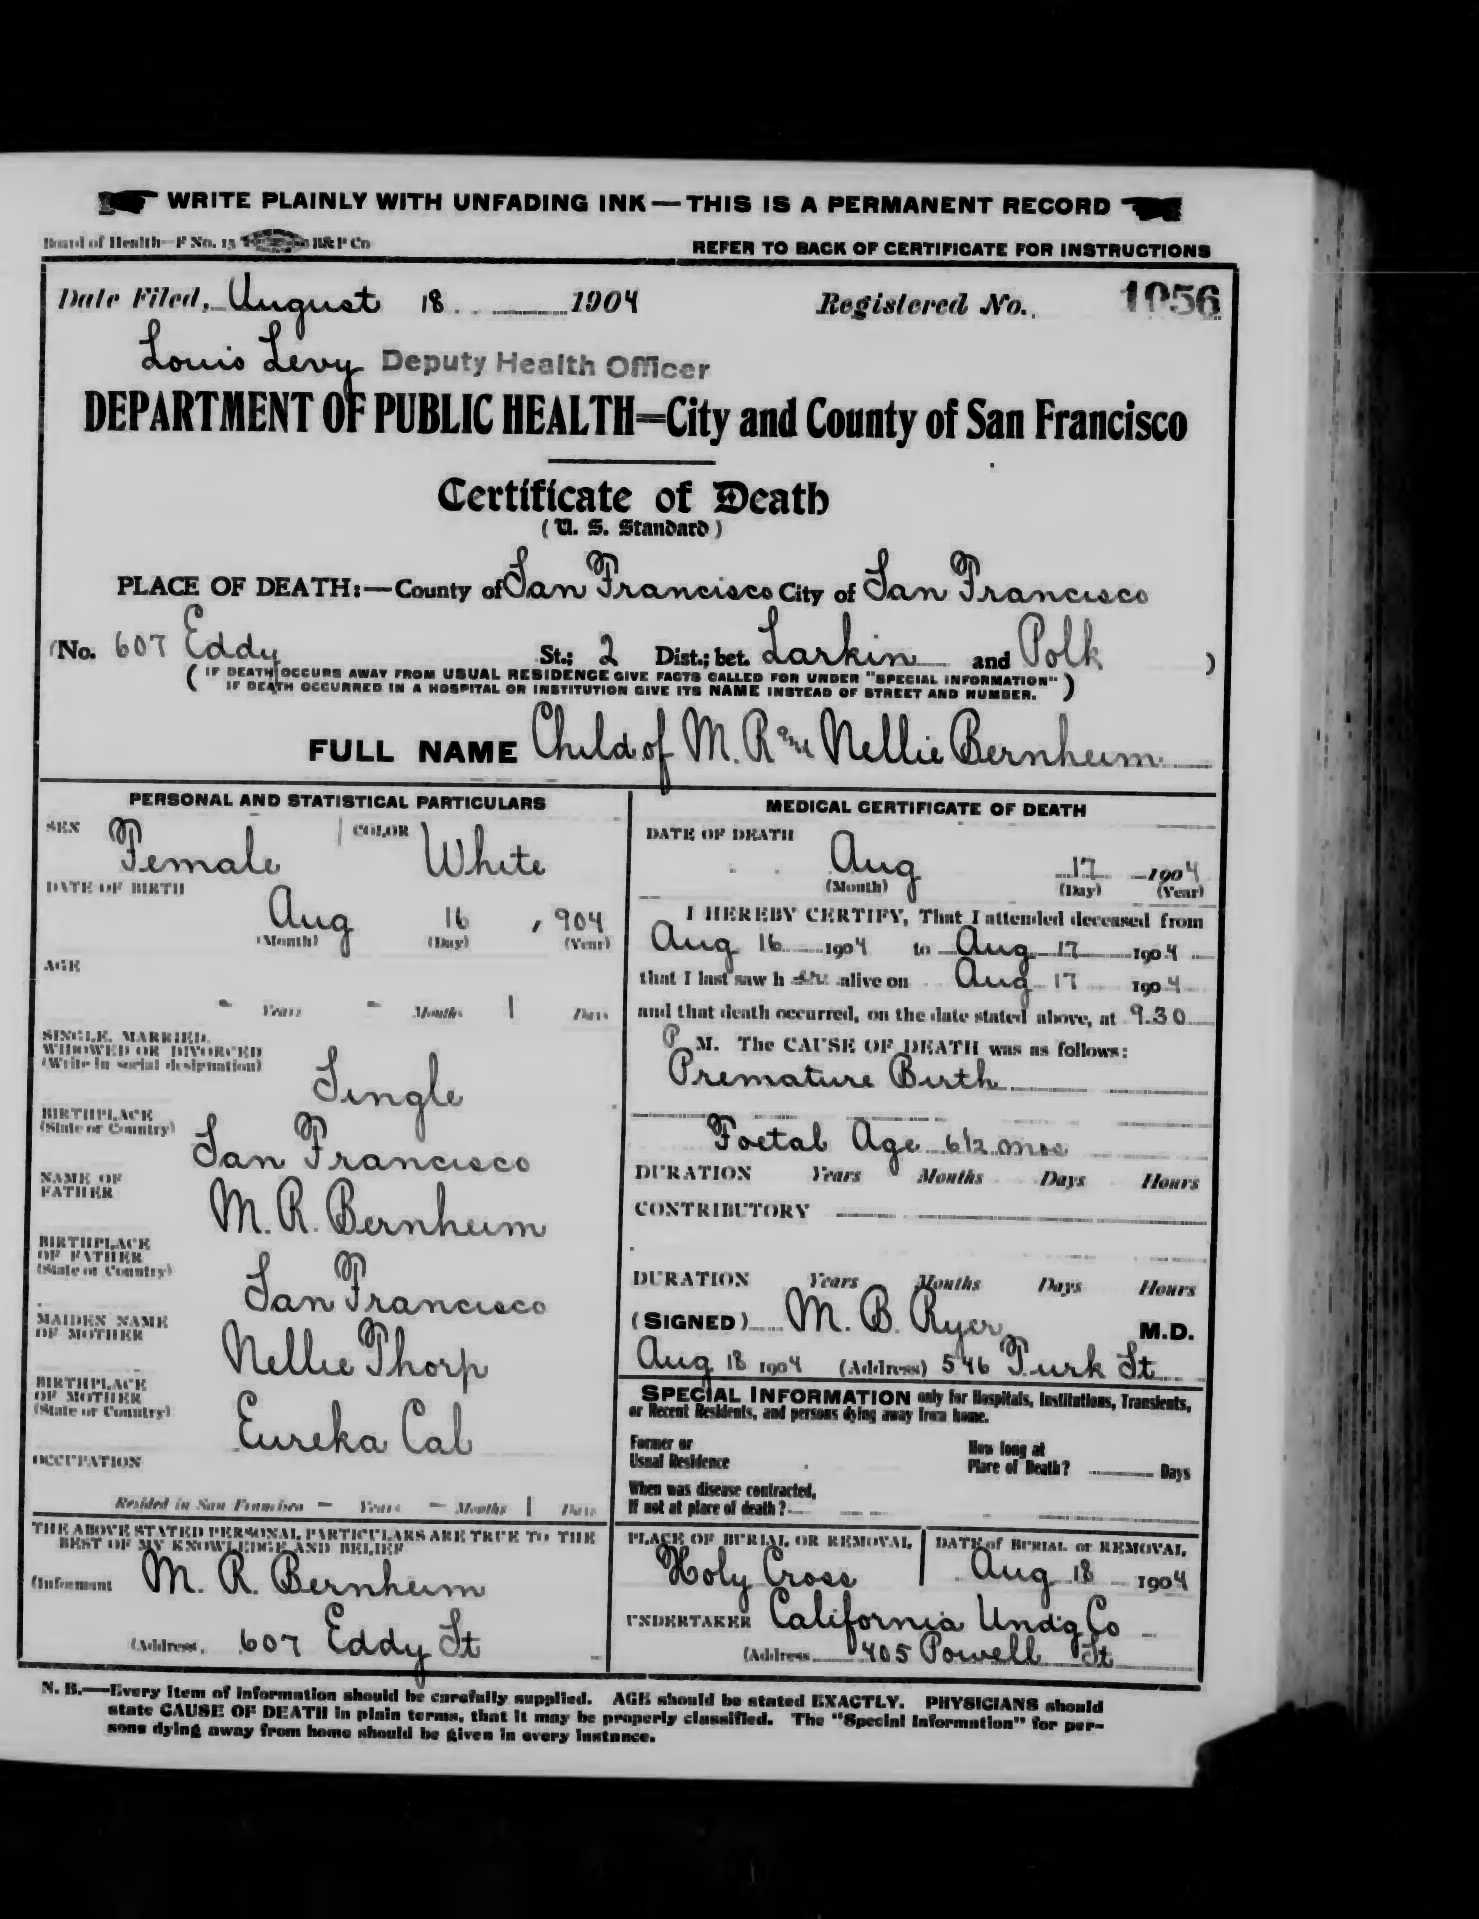 WRITE PLAINLY WITH UNFADING INK—THIS IS A PERMANENT RECORD
Board of Health—F No. 15 B&P Co
REFER TO BACK OF CERTIFICATE FOR INSTRUCTIONS
Date Filed, August 18 1904 Registered No. 1056
Louis Levy Deputy Health Officer
DEPARTMENT OF PUBLIC HEALTH=City and County of San Francisco
Certificate of Death
(U. S. Standard)
PLACE OF DEATH:—County of San Francisco City of San Francisco
(No. 607 Eddy St.; 2 Dist.; bet. Larkin and Polk )
( IF DEATH OCCURS AWAY FROM USUAL RESIDENCE GIVE FACTS CALLED FOR UNDER "SPECIAL INFORMATION"
IF DEATH OCCURRED IN A HOSPITAL OR INSTITUTION GIVE ITS NAME INSTEAD OF STREET AND NUMBER. )
FULL NAME Child of M. R. and Nellie Bernheim
PERSONAL AND STATISTICAL PARTICULARS
SEX Female COLOR White
DATE OF BIRTH
Aug 16 , 904
(Month) (Day) (Year)
AGE
- Years - Months 1 Days
SINGLE, MARRIED,
WIDOWED OR DIVORCED
(Write in social designation)
Single
BIRTHPLACE
(State or Country)
San Francisco
NAME OF
FATHER
M. R. Bernheim
BIRTHPLACE
OF FATHER
(State or Country)
San Francisco
MAIDEN NAME
OF MOTHER
Nellie Thorp
BIRTHPLACE
OF MOTHER
(State or Country)
Eureka Cal
OCCUPATION
Resided in San Francisco - Years - Months 1 Days
THE ABOVE STATED PERSONAL PARTICULARS ARE TRUE TO THE
BEST OF MY KNOWLEDGE AND BELIEF
(Informant M. R. Bernheim
(Address, 607 Eddy St
MEDICAL CERTIFICATE OF DEATH
DATE OF DEATH
Aug 17 1904
(Month) (Day) (Year)
I HEREBY CERTIFY, That I attended deceased from
Aug 16 1904 to Aug 17 1904
that I last saw h er alive on Aug 17 1904
and that death occurred, on the date stated above, at 9.30
P M. The CAUSE OF DEATH was as follows:
Premature Birth
Foetal Age 6 1/2 mos
DURATION Years Months Days Hours
CONTRIBUTORY
DURATION Years Months Days Hours
(SIGNED) M. B. Ryer M.D.
Aug 18 1904 (Address) 546 Turk St
SPECIAL INFORMATION only for Hospitals, Institutions, Transients,
or Recent Residents, and persons dying away from home.
Former or
Usual Residence
How long at
Place of Death? Days
When was disease contracted,
If not at place of death?
PLACE OF BURIAL OR REMOVAL
Holy Cross
DATE of BURIAL or REMOVAL
Aug 18 1904
UNDERTAKER California Undg Co
(Address 405 Powell St
N. B.—Every item of information should be carefully supplied. AGE should be stated EXACTLY. PHYSICIANS should
state CAUSE OF DEATH in plain terms, that it may be properly classified. The "Special Information" for per-
sons dying away from home should be given in every instance.